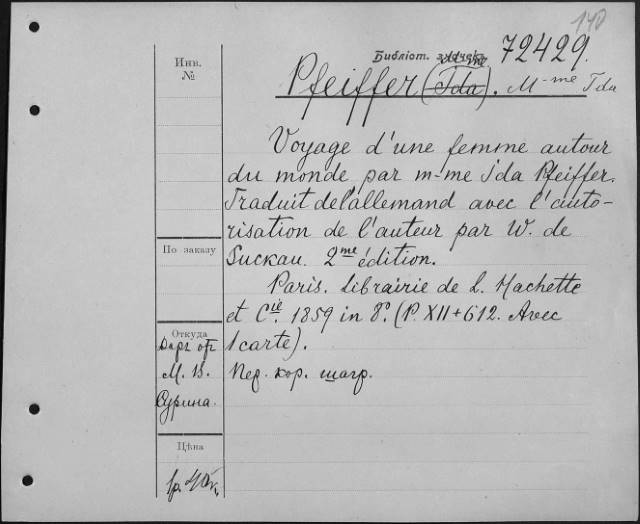 140
Библіот. 72429.
Pfeiffer (Ida). M-me Ida
Инв.
№
Voyage d'une femme autour
du monde par m-me Ida Pfeiffer.
Traduit de l'allemand avec l'auto-
risation de l'auteur par W. de
Suckau. 2me édition.
По заказу
Paris. Librairie de L. Hachette
et Cie. 1859 in 8º. (P. XII+612. Avec
1 carte).
Пер. кор. шагр.
Откуда
Даръ от
М. В.
Сурина.
Цѣна
1р. 40к.